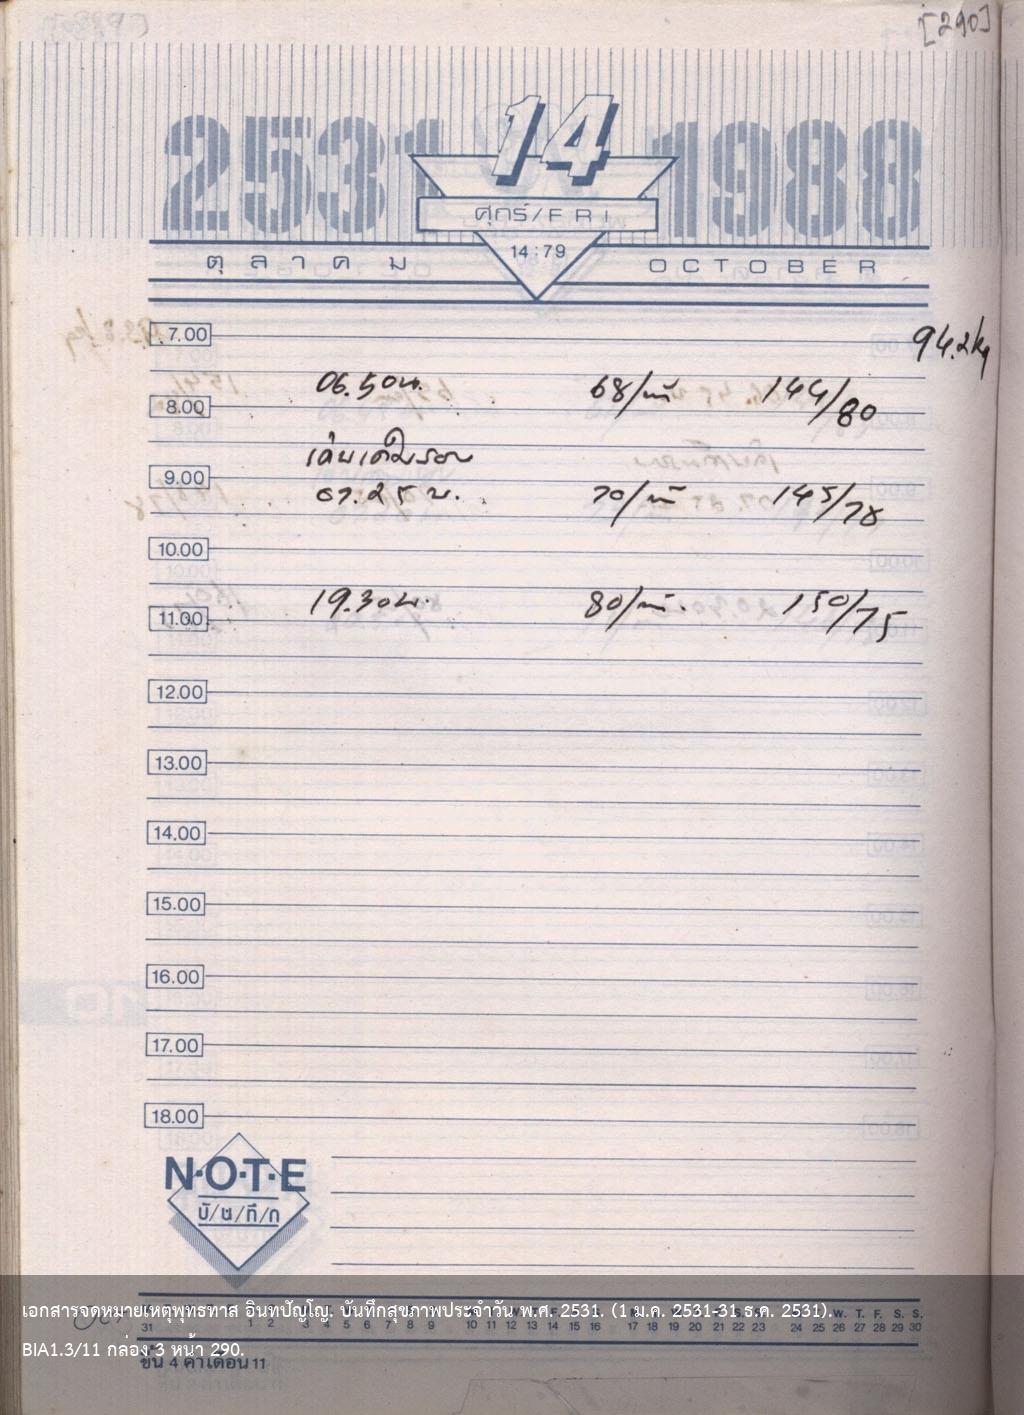 [290]
2531 14 1988
ศุกร์/FRI
14:79
ตุลาคม OCTOBER
7.00 94.2 kg
06.50 น. 68/นาที 144/80
8.00
9.00
07.25 น. 70/นาที 145/78
10.00
19.30 น. 80/นาที 150/75
11.00
12.00
13.00
14.00
15.00
16.00
17.00
18.00
N·O·T·E
บั/น/ทึ/ก
เอกสารจดหมายเหตุพุทธทาส อินทปัญโญ. บันทึกสุขภาพประจำวัน พ.ศ. 2531. (1 ม.ค. 2531-31 ธ.ค. 2531).
31 1 2 3 4 5 6 7 8 9 10 11 12 13 14 15 16 17 18 19 20 21 22 23 24 25 26 27 28 29 30
BIA1.3/11 กล่อง 3 หน้า 290.
ขึ้น 4 ค่ำเดือน 11